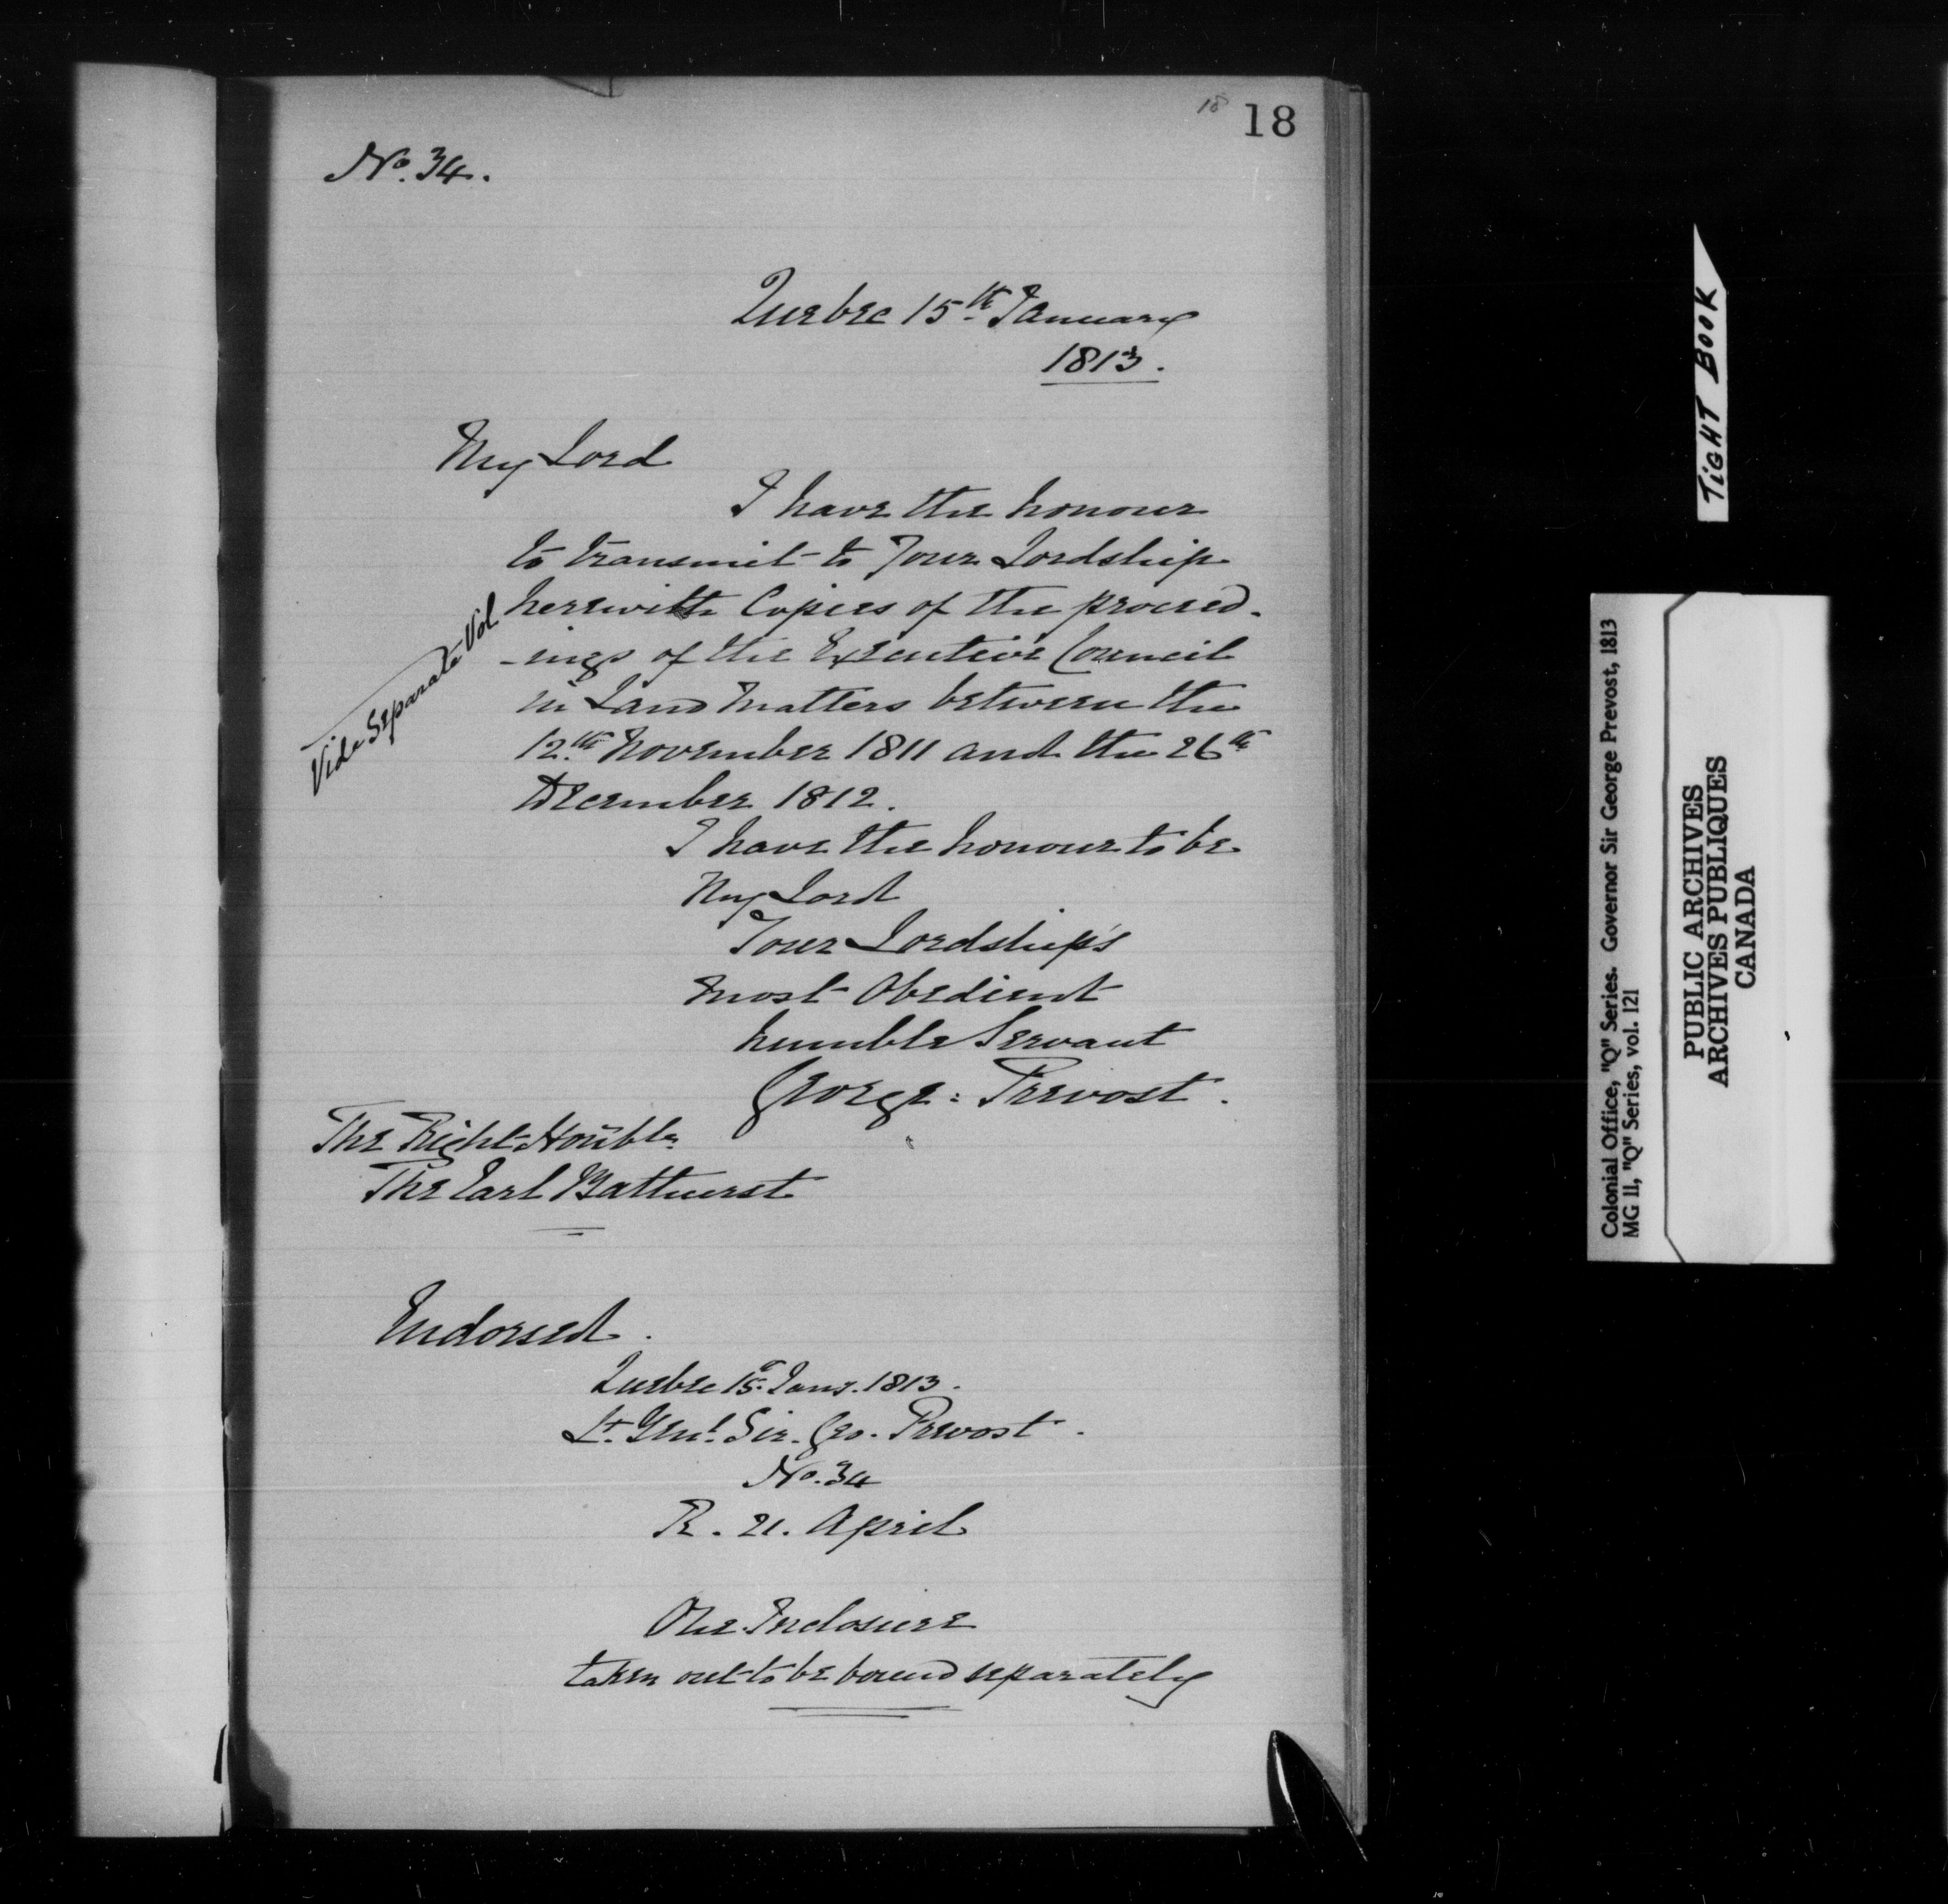 18 18
No. 34.
Quebec 15th January
1813.
My Lord
I have the honour
to transmit to Your Lordship
herewith Copies of the proceed-
-ings of the Executive Council
in Land Matters between the
12th November 1811 and the 26th
December 1812.
Vide Separate Vol
I have the honour to be
My Lord
Your Lordship's
most Obedient
humble Servant
George Prevost.
The Right Honble
The Earl Bathurst
Endorsed.
Quebec 15th Jany. 1813.
Lt. Genl. Sir. Geo. Prevost.
No. 34
R. 21. April
One Inclosure
taken out to be bound separately
TIGHT BOOK
Colonial Office, "Q" Series. Governor Sir George Prevost, 1813
MG 11, "Q" Series, vol. 121
PUBLIC ARCHIVES
ARCHIVES PUBLIQUES
CANADA